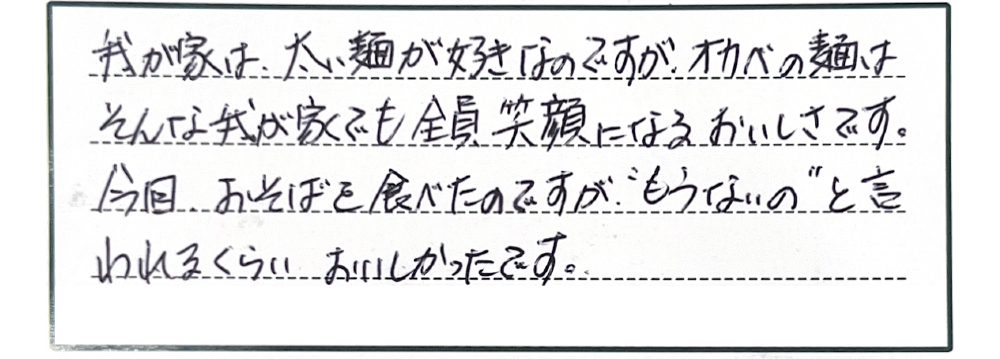 我が家は、太い麺が好きなのですが、オカベの麺は
そんな我が家でも全員笑顔になるおいしさです。
今回、おそばを食べたのですが、"もうないの"と言
われるくらい おいしかったです。